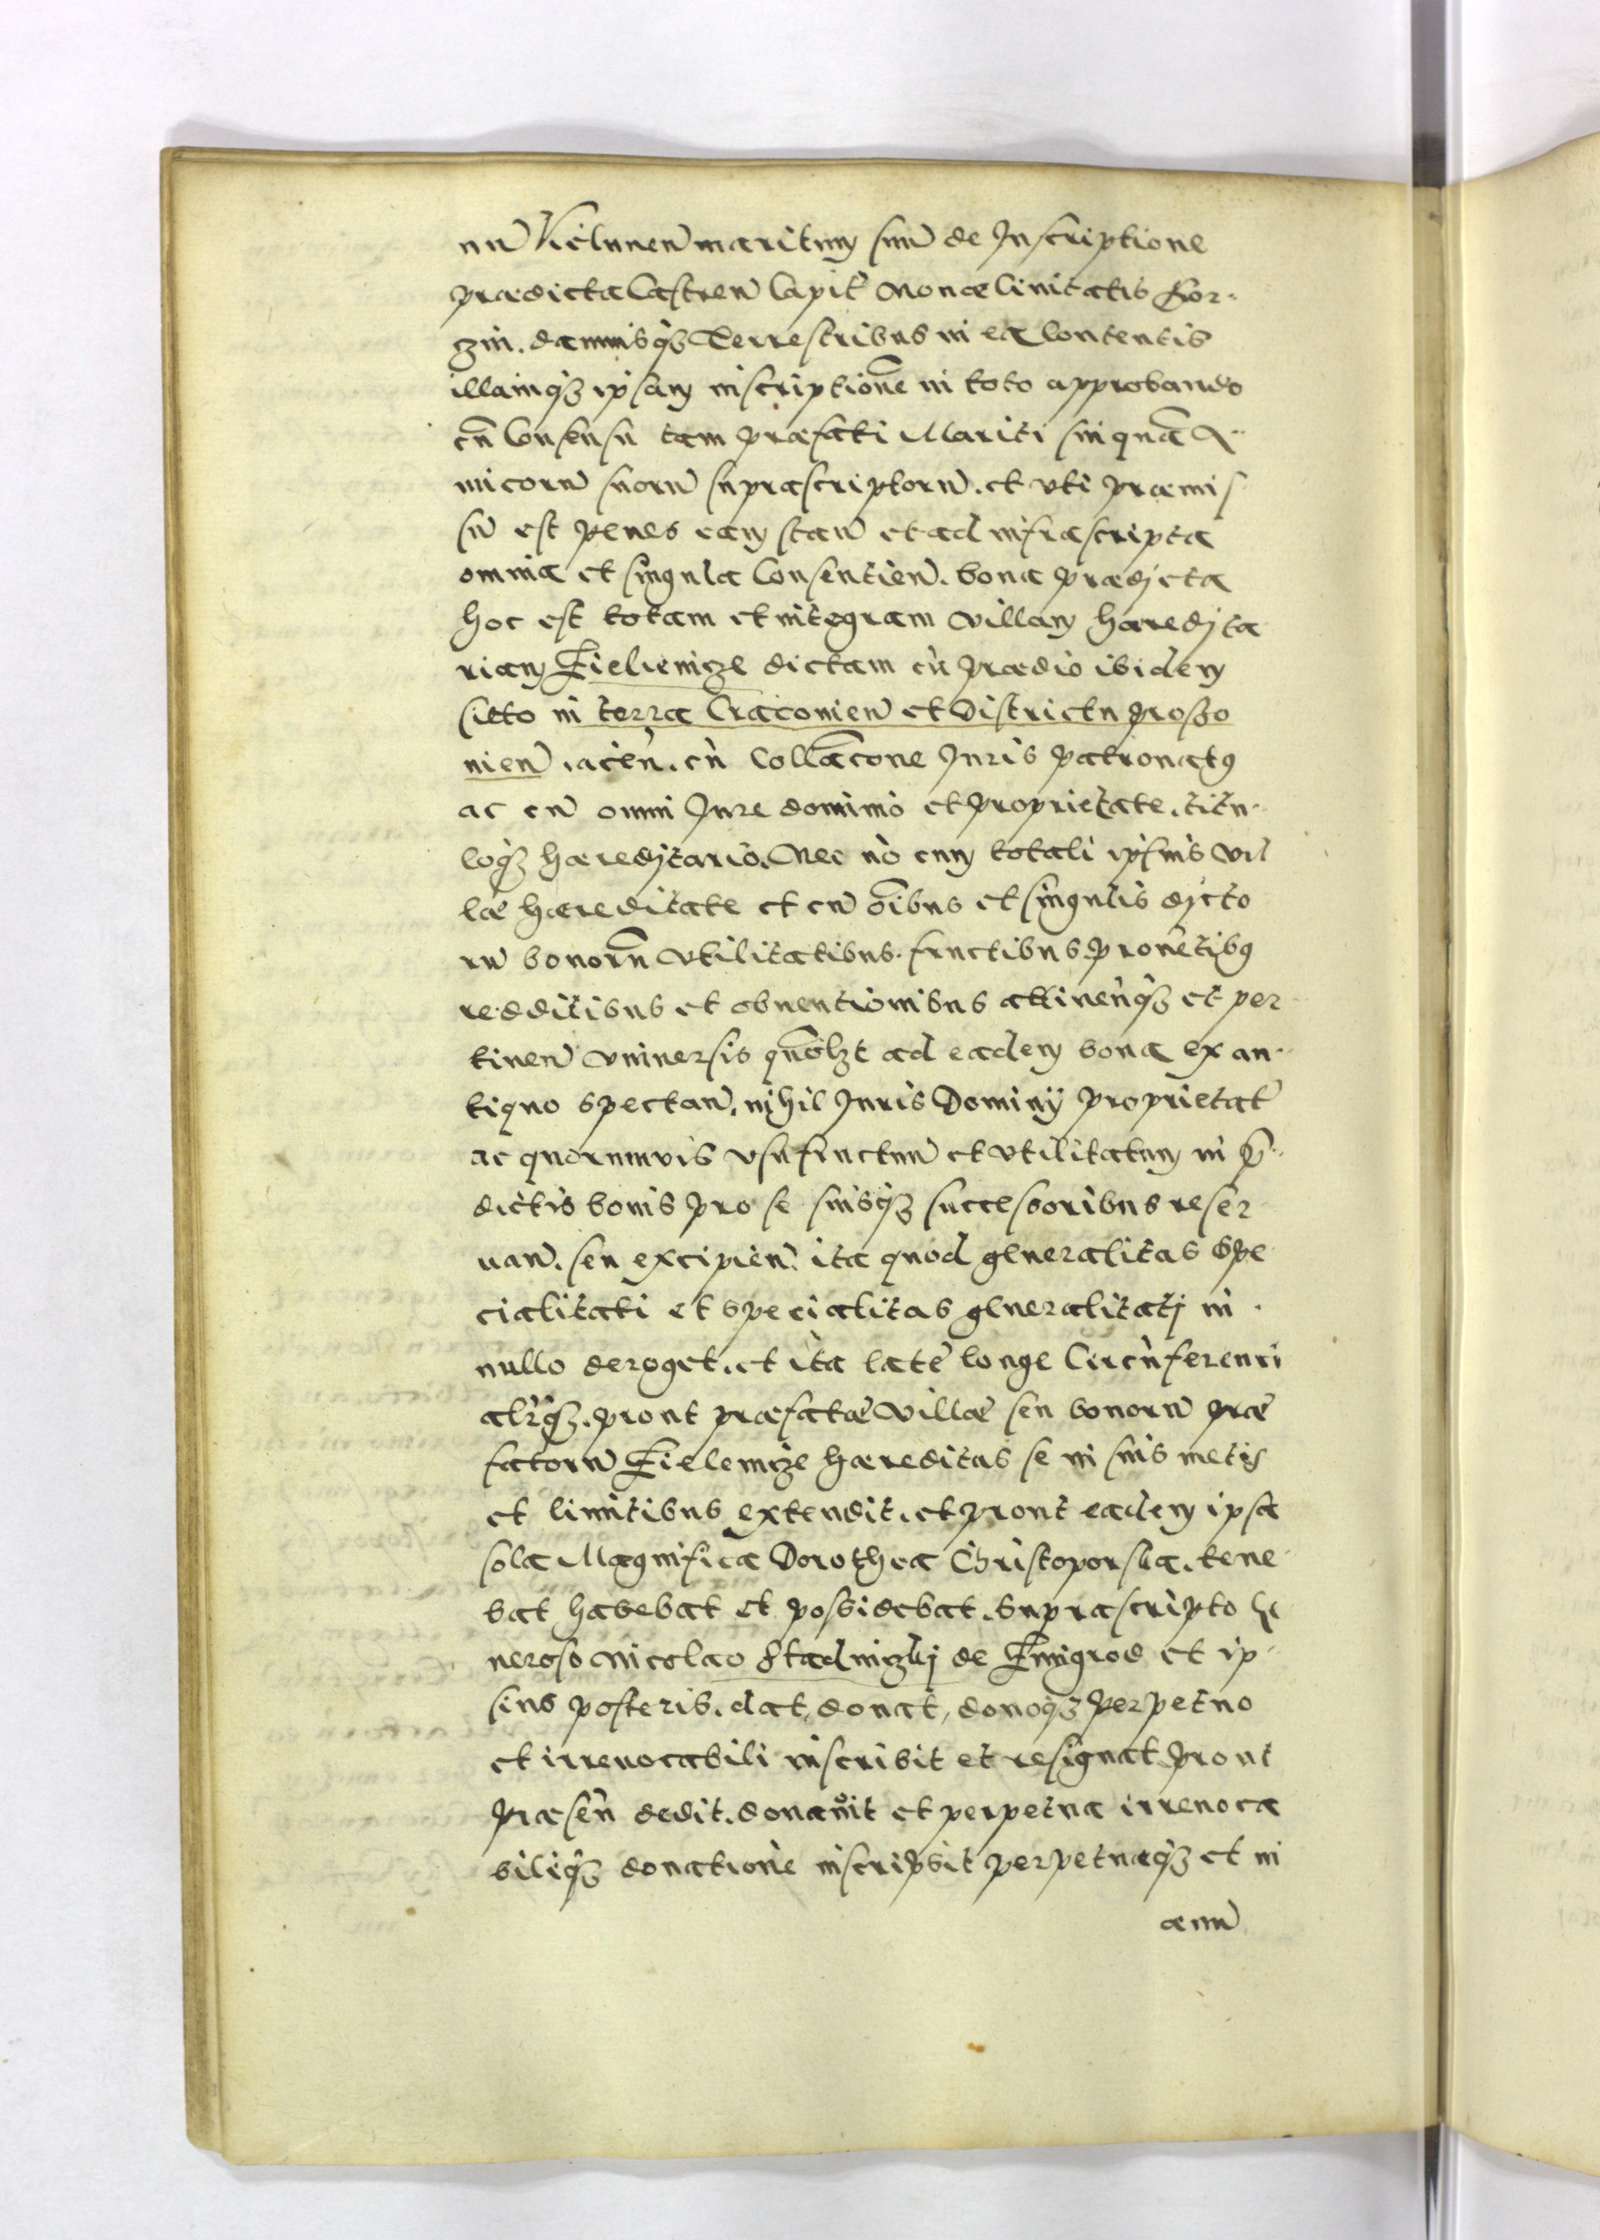 nu̅ Vielunen̅ maritum suu̅ de Inscriptione
prædicta Castren̅ Capit̅ Nonæ Civitatis Cor-
zin. damnisq̃ Terrestribus in ea Contentis
illamq̃ ipsam inscriptione̅ in toto approbando
cu̅ Consensu tam præfati Mariti sui qua̅ A-
micoru̅ suoru̅ supræscriptoru̅. et uti præmis
su̅ est penes eam stan̅ et ad infrascripta
omnia et singula Consentien̅. bona prædicta
hoc est totam et integram Villam hæredita
riam Zielienicze dictam cu̅ prædio ibidem
sitto in terra Cracovien̅ et Districtu Prosso
vien̅ .acen̅. cu̅ Colla̅cone Juris patronatus
ac cu̅ omni Jure dominio et proprietate. titu-
loq̃ hæreditario. Nec no̅ cum totali ipsius vil
læ hæreditate et cu̅ o̅ibus et singulis dicto
ru̅ bonoru̅ utilitatibus. fructibus prove̅tibus
redditibus et obventionibus attinen̅q̃ et per
tinen̅ universis quo̅lzt ad eadem bona ex an-
tiquo spectan̅. nihil Juris Dominij proprietat̅
ac quorumvis usufructuu̅ et utilitatum in p̅-
dictis bonis pro se suisq̃ successoribus reser
van̅. seu excipien̅. ita quod generalitas Spe
cialitati et specialitas generalitati in
nullo deroget. et ita late longe Circu̅ferenti
alr̅q̃. prout præfatæ Villæ seu bonoru̅ præ
fatoru̅ Zielenicze hæreditas se in suis metis
et limitibus extendit. et prout eadem ipsa
sola Magnifica Dorothea Christoporska. tene-
bat habebat et possidebat. Supra scripto Ge
neroso Nicolao Stadniczkj de Zmigrod et ip-
sius posteris. dat, donat, donoq̃ perpetuo
et irrevocabili inscribit et resignat prout
præsen̅ dedit. donavit et perpetua irrevoca
biliq̃ donatione̅ inscripsit perpetuæq̃ et in
ævuu̅